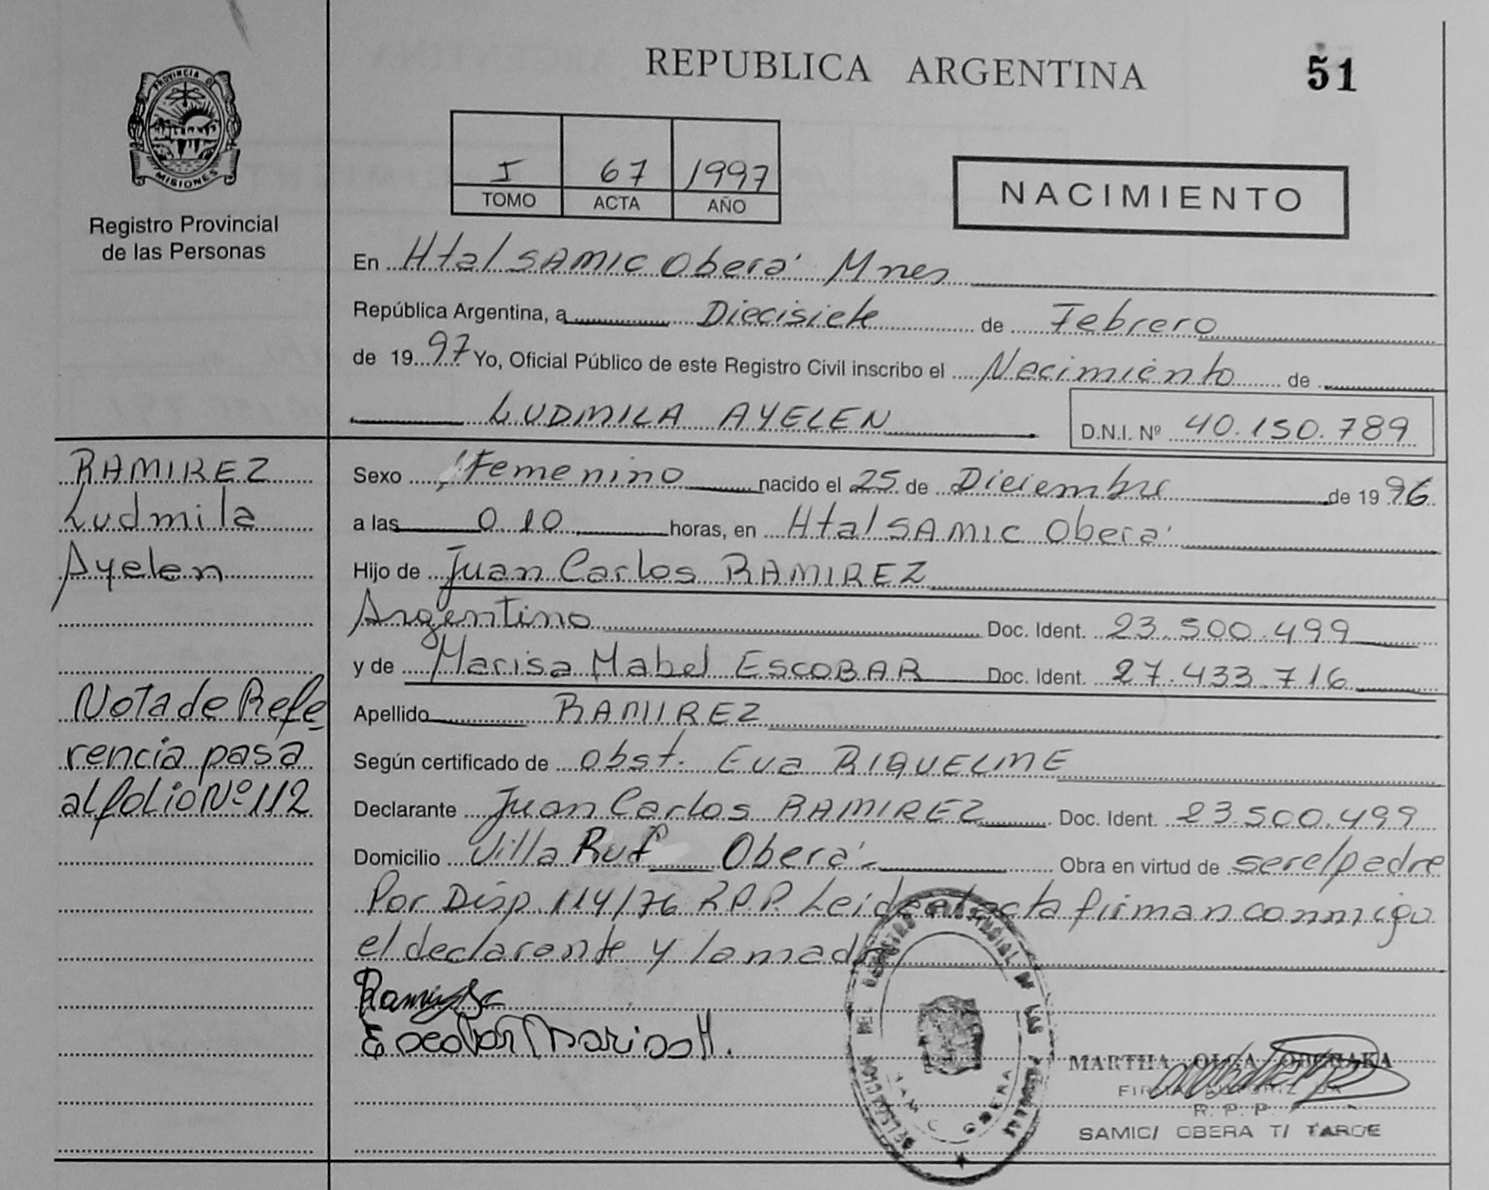 REPUBLICA ARGENTINA
51
PROVINCIA DE
MISIONES
Registro Provincial
de las Personas
I 67 1997
TOMO ACTA AÑO
NACIMIENTO
En Htal SAMIC Oberá Mnes
República Argentina, a Diecisiete de Febrero
de 1997 Yo, Oficial Público de este Registro Civil inscribo el Nacimiento de
LUDMILA AYELEN D.N.I. Nº 40.150.789
RAMIREZ
Ludmila
Ayelen
Nota de Refe
rencia pasa
al folio Nº 112
Sexo Femenino nacido el 25 de Diciembre de 1996
a las 0 10 horas, en Htal SAMIC Oberá
Hijo de Juan Carlos RAMIREZ
Argentino Doc. Ident. 23.500.499
y de Marisa Mabel ESCOBAR Doc. Ident. 27.433.716
Apellido RAMIREZ
Según certificado de Obst. Eva RIQUELME
Declarante Juan Carlos RAMIREZ Doc. Ident. 23.500.499
Domicilio Villa Ruf Oberá Obra en virtud de ser el padre
Por Disp. 114/76 R.P.P. Leida el acta firman conmigo
el declarante y la madre
Escobar Marisa M.
MARTHA OLGA
R. P. P.
SAMIC/ OBERA T/ TARDE